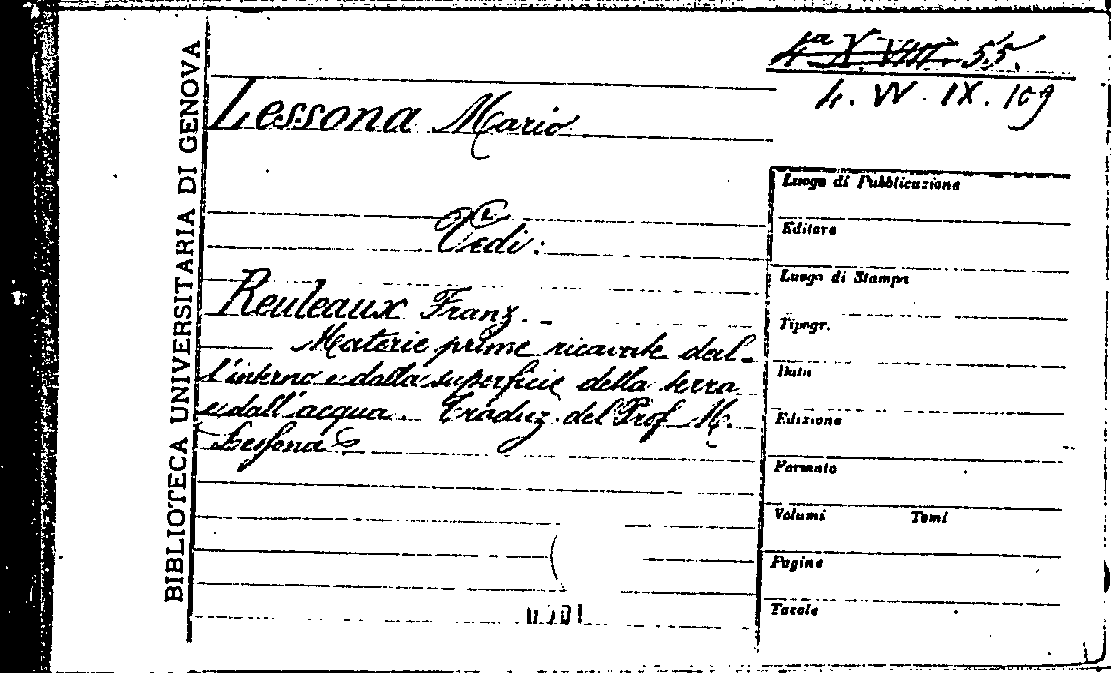 BIBLIOTECA UNIVERSITARIA DI GENOVA
4ª X. VIII. 55.
4. VV. IX. 109
Lessona Mario
Vedi:
Reuleaux Franz. -
Materie prime ricavate dal-
l'interno e dalla superficie della terra
e dall'acqua. Traduz. del Prof. M.
Lessona
Luogo di Pubblicazione
Editore
Luogo di Stampa
Tipogr.
Data
Edizione
Formato
Volumi Tomi
Pagine
Tavole